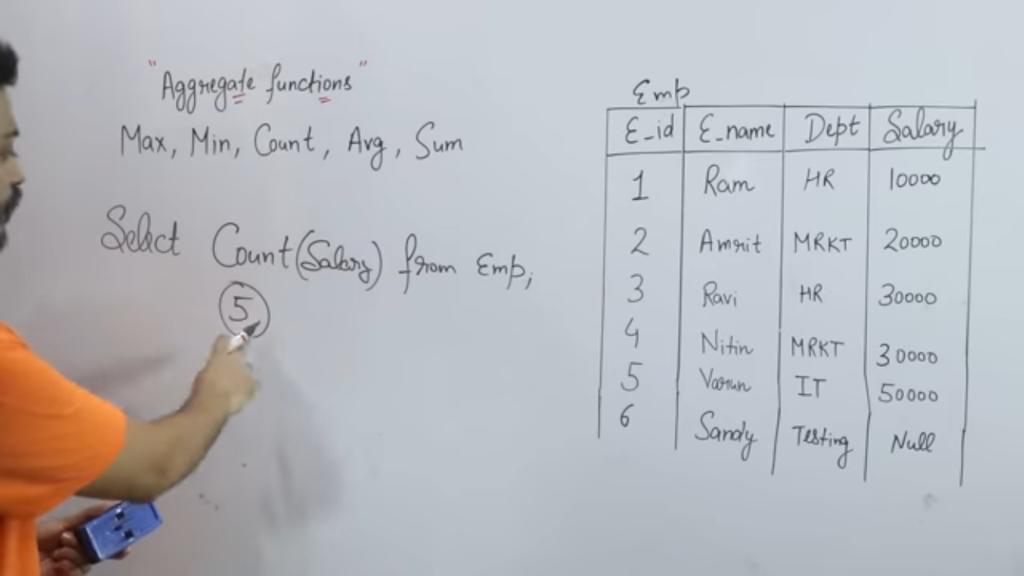 "Aggregate functions"
Max, Min, Count, Avg, Sum
Select Count(Salary) from Emp;
5
Emp
E_id E_name Dept Salary
1 Ram HR 10000
2 Amrit MRKT 20000
3 Ravi HR 30000
4 Nitin MRKT 30000
5 Varun IT 50000
6 Sandy Testing Null